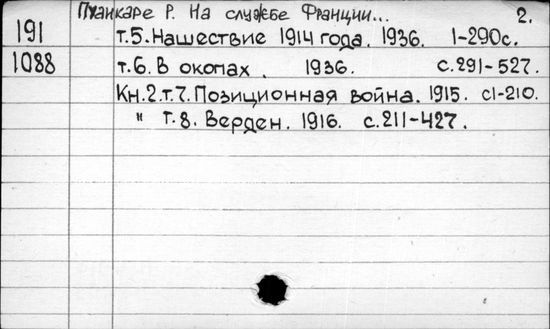 Пуанкаре Р. На службе Франции... 2.
191 т.5. Нашествие 1914 года. 1936. 1-290с.
1088 т.6. В окопах. 1936. с.291-527.
Кн.2.т.7. Позиционная война. 1915. с1-210.
" т.8. Верден. 1916. с.211-427.